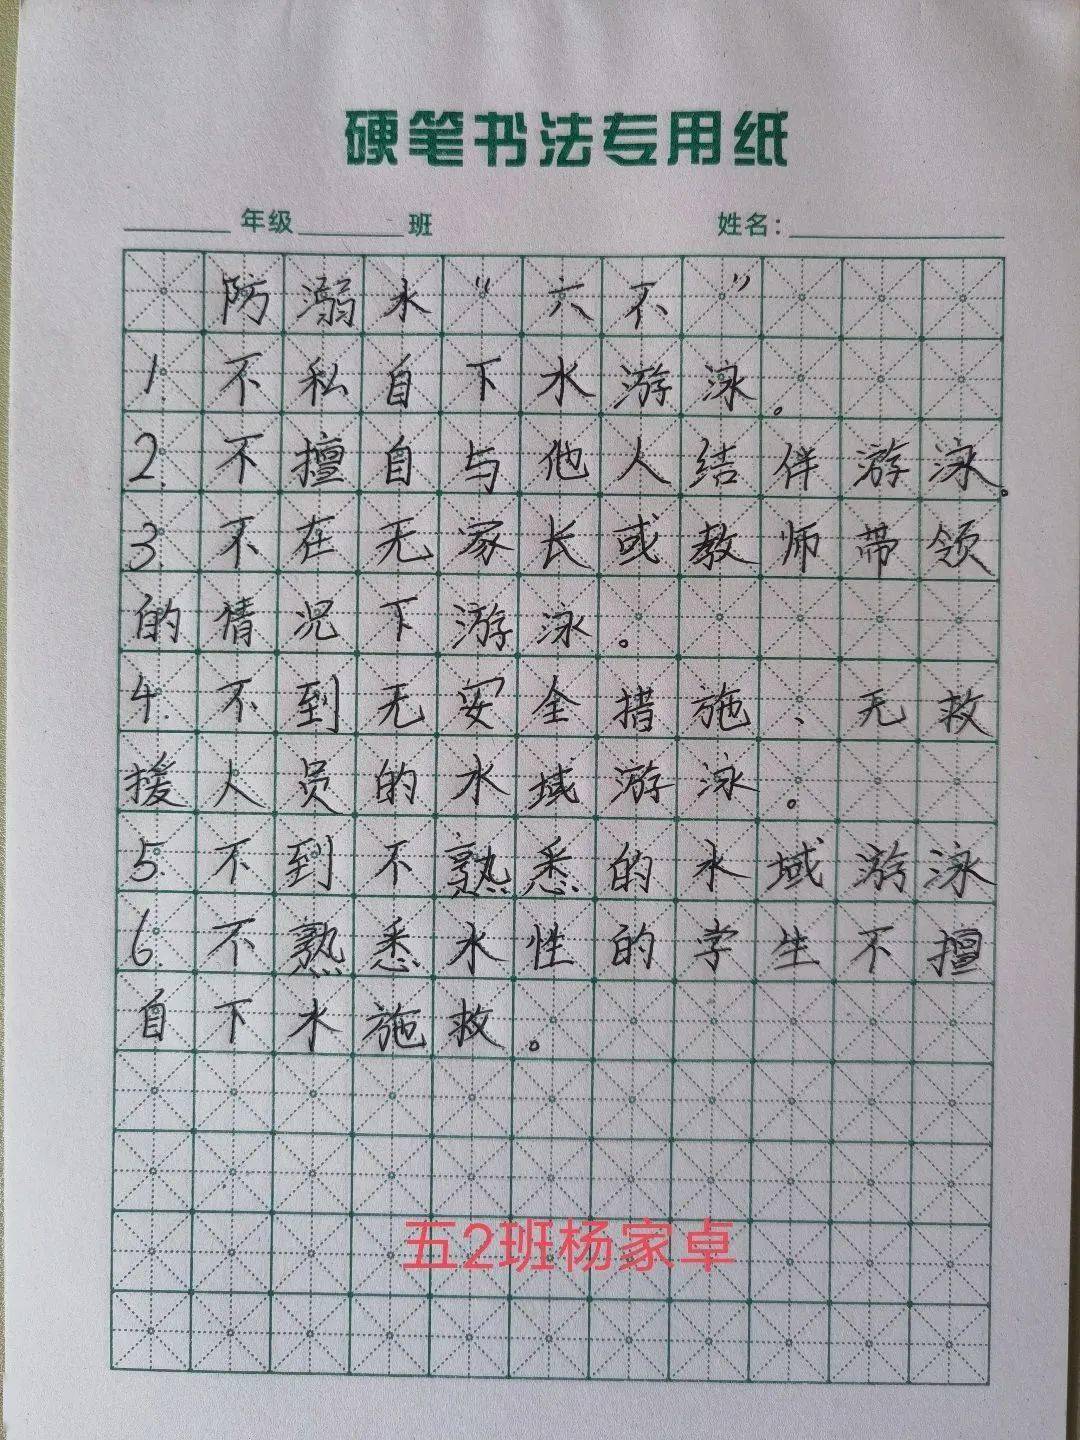 硬笔书法专用纸
年级 班 姓名：
防溺水“六不”
1 不私自下水游泳。
2. 不擅自与他人结伴游泳。
3. 不在无家长或教师带领
的情况下游泳。
4. 不到无安全措施、无救
援人员的水域游泳。
5. 不到不熟悉的水域游泳
6. 不熟悉水性的学生不擅
自下水施救。
五2班杨家卓